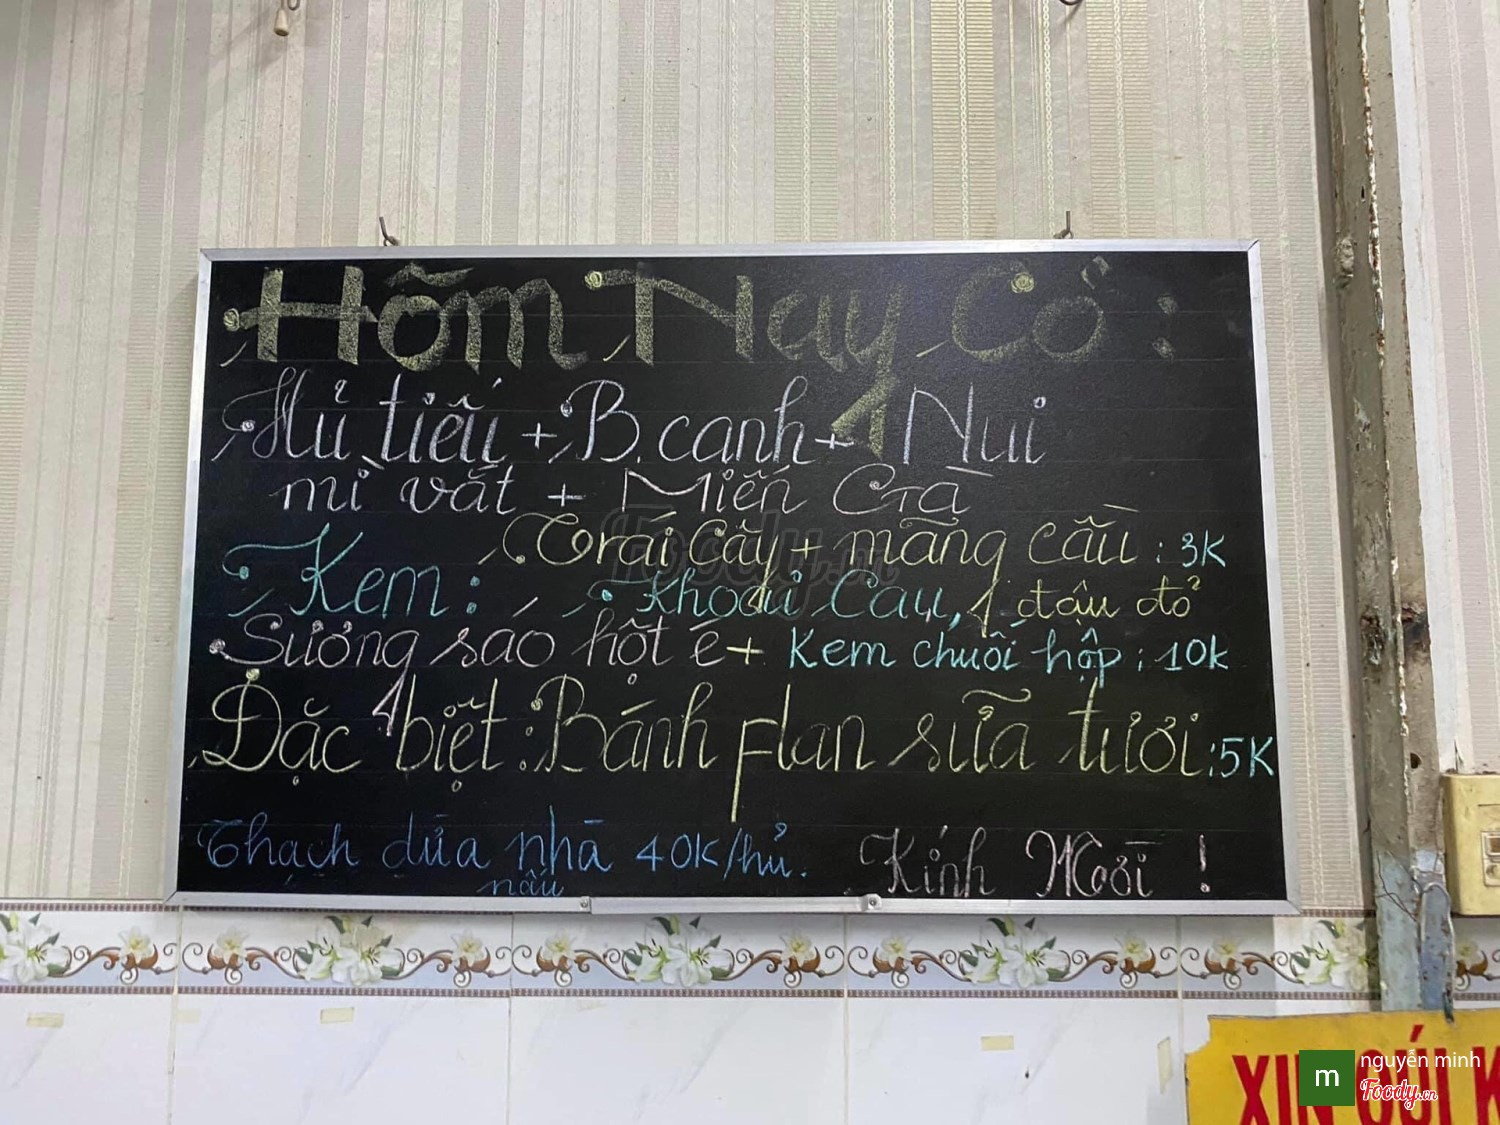 Hôm Nay Có :
Hủ tiếu + B. canh + Nui
mì vắt + Miến Gà
Kem : Trái Cây + mãng cầu : 3K
Khoai Cau, đậu đỏ
Sương sáo hột é + Kem chuối hộp : 10k
Đặc biệt : Bánh flan sữa tươi : 5K
Thạch dừa nhà nấu 40K/hủ.
Kính Mời !
Foody.vn
XIN GỬI
m nguyễn minh
Foody.vn